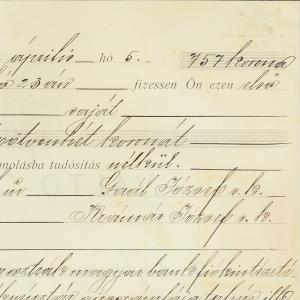 április hó 5. 757 korona
23án fizessen Ön ezen első
saját
ötvenhét koronát
molásba tudósitás nélkül.
úr Gaál József s. k.
Krámár József s. k.
osztrák magyar bank fiókintéző